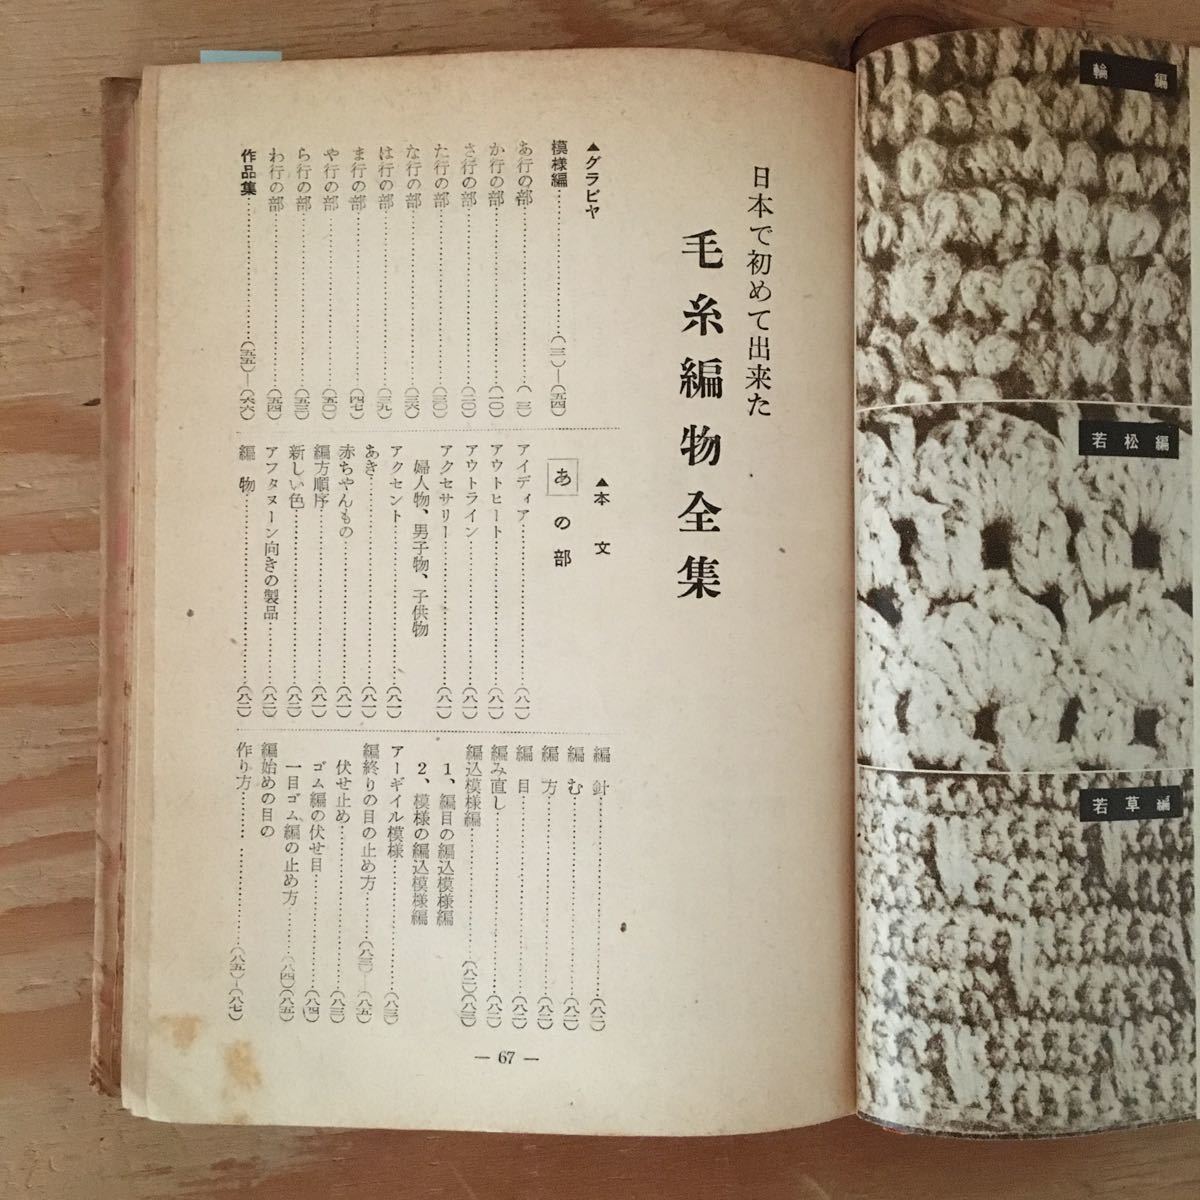 日本で初めて出来た
毛糸編物全集
▲グラビヤ
模様編……(三)—(五四)
あ行の部……(三)
か行の部……(一〇)
さ行の部……(二〇)
た行の部……(三〇)
な行の部……(三六)
は行の部……(三九)
ま行の部……(四七)
や行の部……(五〇)
ら行の部……(五三)
わ行の部……(五四)
作品集……(五五)—(六六)
▲本文
あの部
アイディア……(八一)
アウトヒート……(八一)
アウトライン……(八一)
アクセサリー……(八一)
婦人物、男子物、子供物
アクセント……(八一)
あき……(八一)
赤ちやんもの……(八一)
編方順序……(八一)
新しい色……(八二)
アフタヌーン向きの製品……(八二)
編物……(八二)
編針……(八二)
編む……(八二)
編方……(八二)
編目……(八二)
編み直し……(八二)
編込模様編……(八二)(八三)
1、編目の編込模様編
2、模様の編込模様編
アーギイル模様……(八三)
編終りの目の止め方……(八三)—(八五)
伏せ止め……(八三)
ゴム編の伏せ目……(八四)
一目ゴム編の止め方……(八四)(八五)
編始めの目の
作り方……(八五)—(八七)
— 67 —
輪編
若松編
若草編